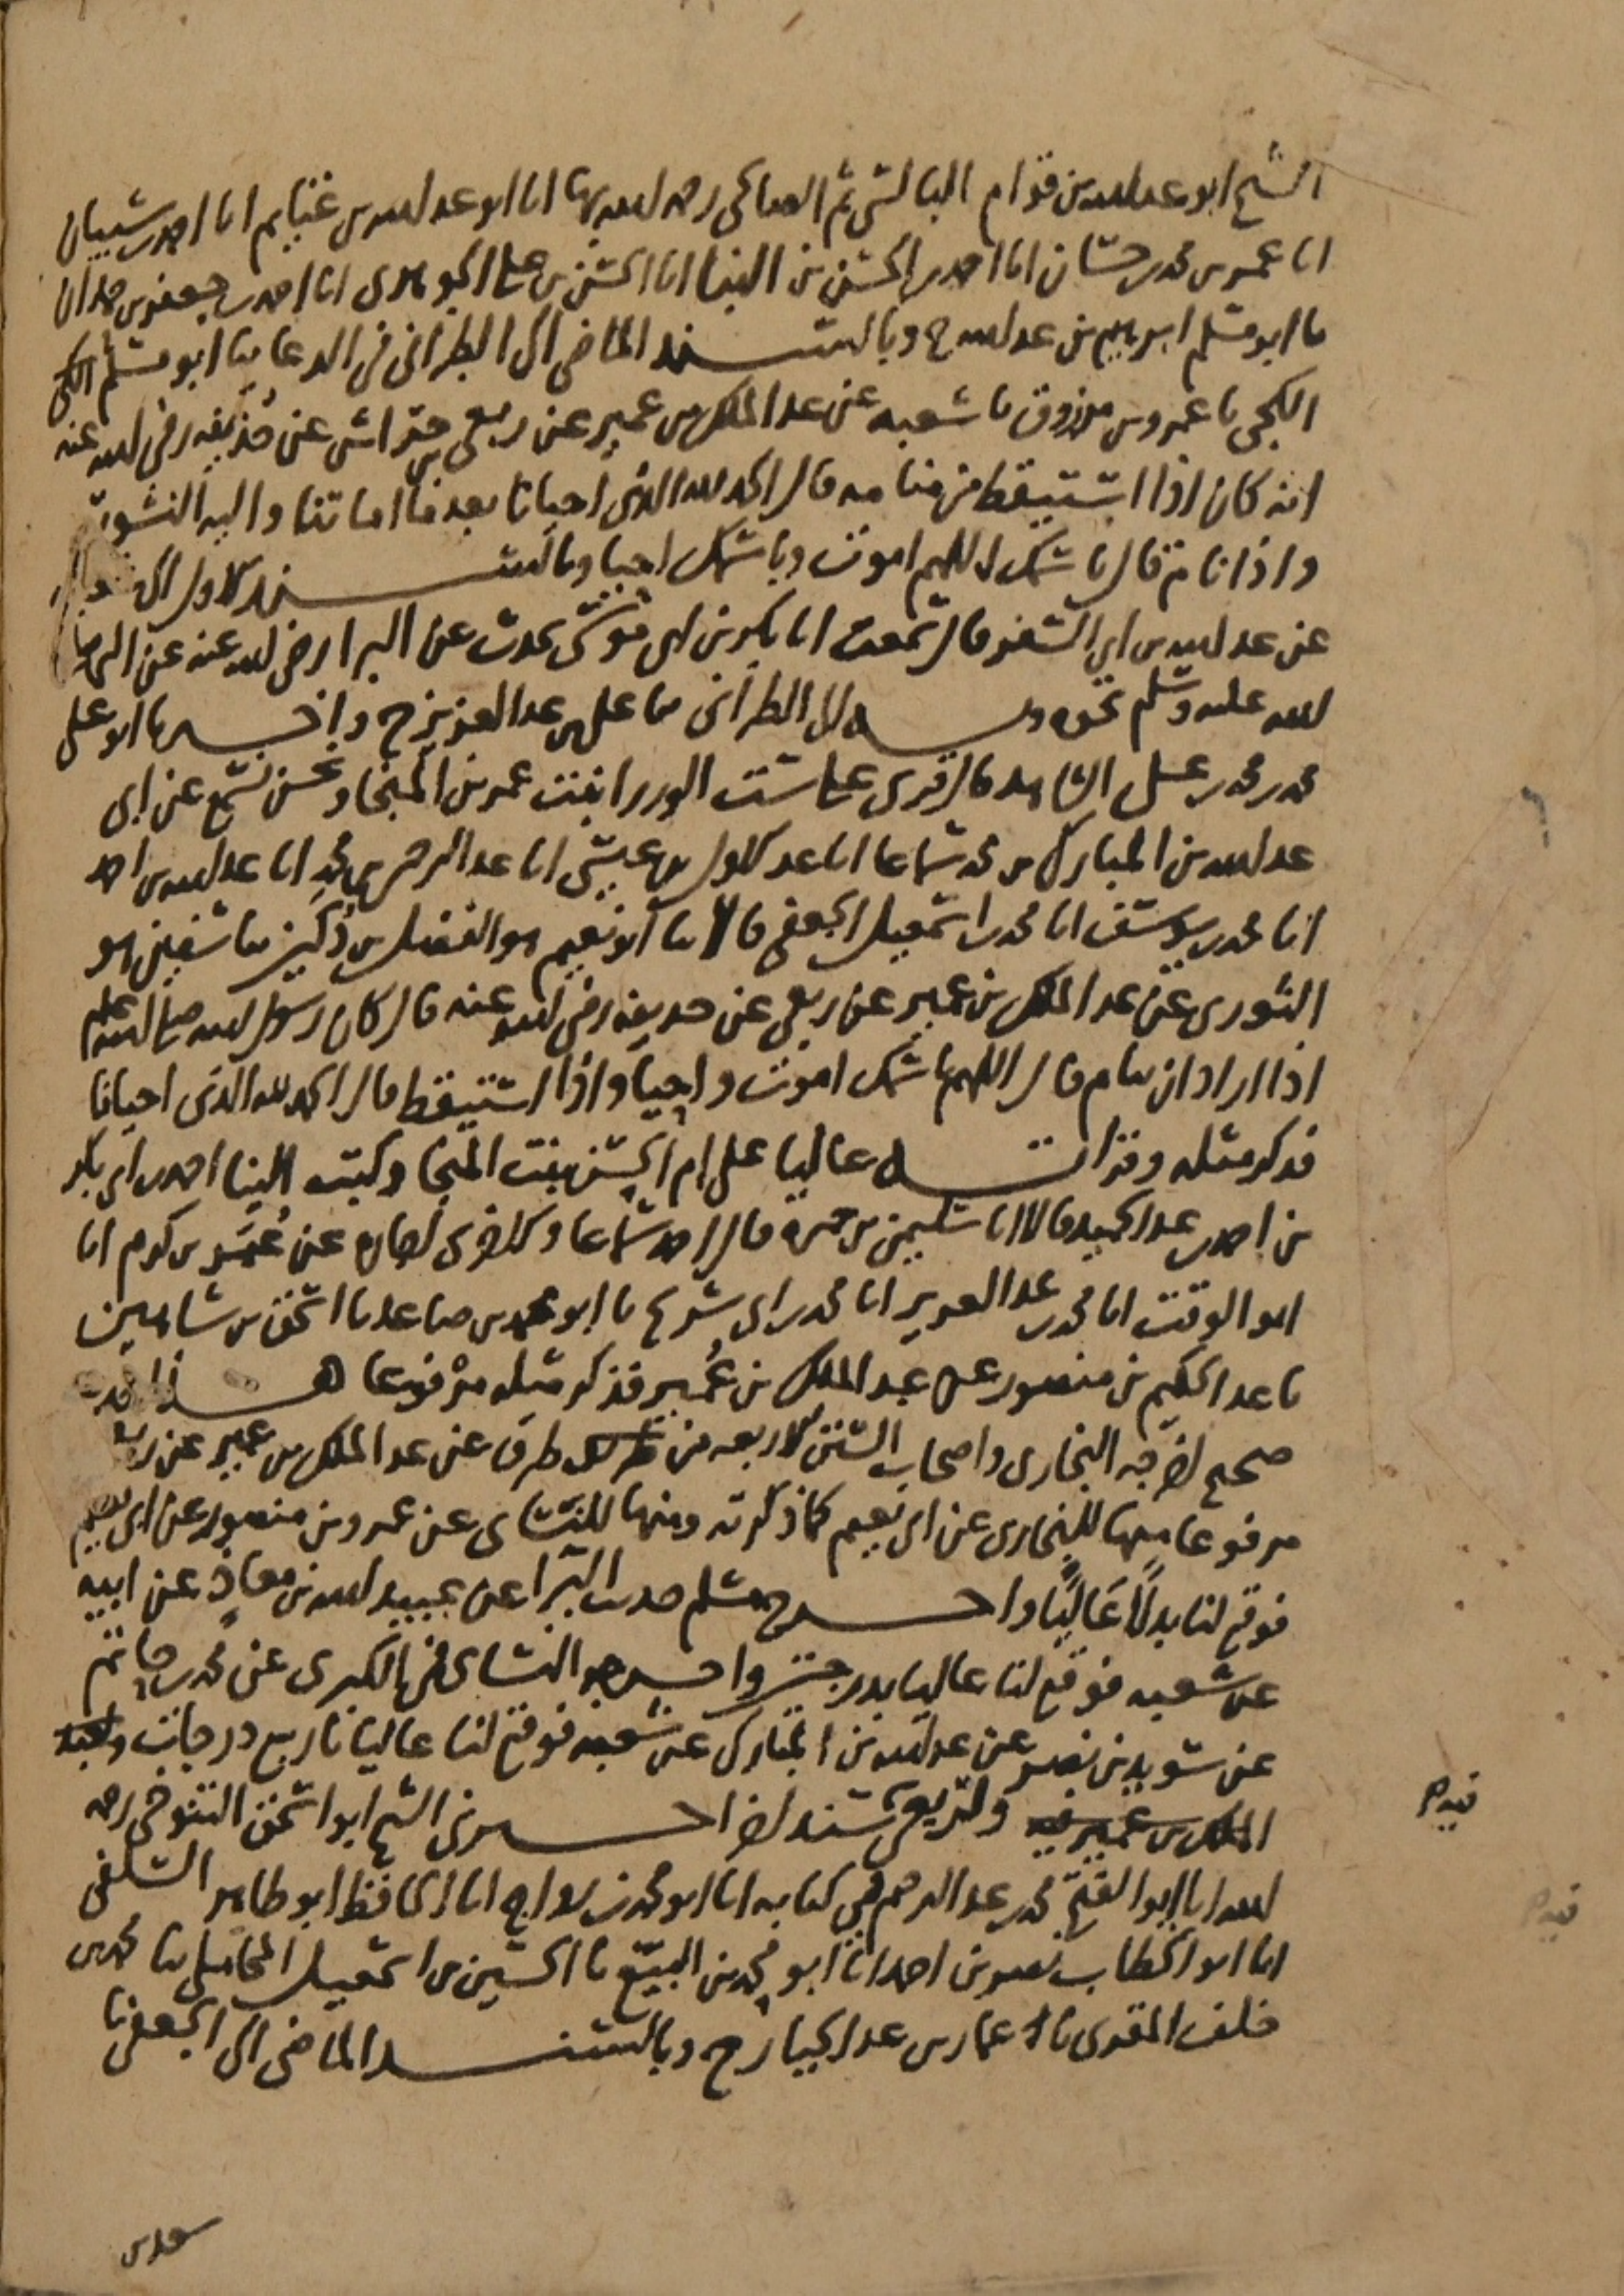 الشيخ ابو عبد الله بن قوام البالسي ثم الصالحي رحمه الله بها انا ابو عبد الله بن غنايم انا احمد بن شيبان
انا عمر بن محمد بن حسان انا احمد بن الحسن بن البنا انا الحسن بن علي الجوهري انا احمد بن جعفر بن حمدان
نا ابو مسلم ابرهيم بن عبد الله ح وبالسند الماضي الى الطبراني في الدعا ثنا ابو مسلم الكجي
الكجي نا عمرو بن مرزوق نا شعبه عن عبد الملك بن عمير عن ربعي بن حراش عن حذيفه رضي الله عنه
انه كان اذا استيقظ من منامه قال الحمد لله الذي احيانا بعد ما اماتنا واليه النشور
واذا نام قال باسمك اللهم اموت وباسمك احيا وبالسند الاول الى
عن عبد الله بن ابي السفر قال سمعت ابا بكر بن ابي موسى يحدث عن البرا رضي الله عنه عن النبي صلى
الله عليه وسلم نحوه وبه الى الطبراني ثنا علي بن عبد العزيز ح واخبرنا ابو علي
محمد بن محمد بن علي الشاهد قال قرى على ست الوزرا بنت عمر بن المنجا ونحن نسمع عن ابي
عبد الله بن المبارك بن محمد سماعا انا عبد الاول بن عيسى انا عبد الرحمن بن محمد انا عبد الله بن احمد
انا محمد بن يوسف انا محمد بن اسمعيل الجعفي قالا ثنا ابو نعيم هو الفضل بن دكين ثنا سفين هو
الثوري عن عبد الملك بن عمير عن ربعي عن حذيفه رضي الله عنه قال كان رسول الله صلى الله عليه وسلم
اذا اراد ان ينام قال اللهم باسمك اموت واحيا واذا استيقظ قال الحمد لله الذي احيانا
فذكر مثله وقراته عاليا على ام الحسن بنت المنجا وكتب الينا احمد بن ابي بكر
بن احمد بن عبد الحميد قالا انا سليمن بن حمزه قال احمد سماعا والاخرى اجازه عن عمر بن كرم انا
ابو الوقت انا محمد بن عبد العزيز انا محمد بن ابي شريح نا ابو محمد بن صاعد نا اسحق بن شاهين
نا عبد الحكيم بن منصور عن عبد الملك بن عمير فذكر مثله مرفوعا هذا حديث
صحيح اخرجه البخاري واصحاب السنن الاربعه من طرق عن عبد الملك بن عمير عن ربعي
مرفوعا منها للبخاري عن ابي نعيم كما ذكرته ومنها للنسائي عن عمرو بن منصور عن ابي نعيم
فوقع لنا بدلًا عاليًا واخرج مسلم حديث البرا عن عبيد الله بن معاذ عن ابيه
عن شعبه فوقع لنا عاليا بدرجتين واخرجه النسائي في الكبرى عن محمد بن حاتم
عن سويد بن نصر عن عبد الله بن المبارك عن شعبه فوقع لنا عاليا باربع درجات ولعبد
الملك بن عمير فيه ولربعي سند اخر اخبرني الشيخ ابو اسحق التنوخي رحمه
الله انا ابو الفتح محمد بن عبد الرحيم في كتابه انا ابو محمد بن رواج انا الحافظ ابو طاهر السلفي
انا ابو الخطاب نصر بن احمد انا ابو محمد بن البيع نا الحسين بن اسمعيل المحاملي ثنا محمد بن
خلف المقري نا عمار بن عبد الجبار ح وبالسند الماضي الى الجعفي نا
سعد بن